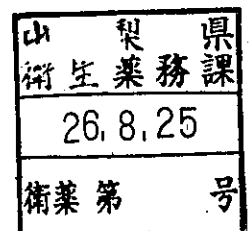 山梨県
衛生薬務課
26.8.25
衛薬第 号